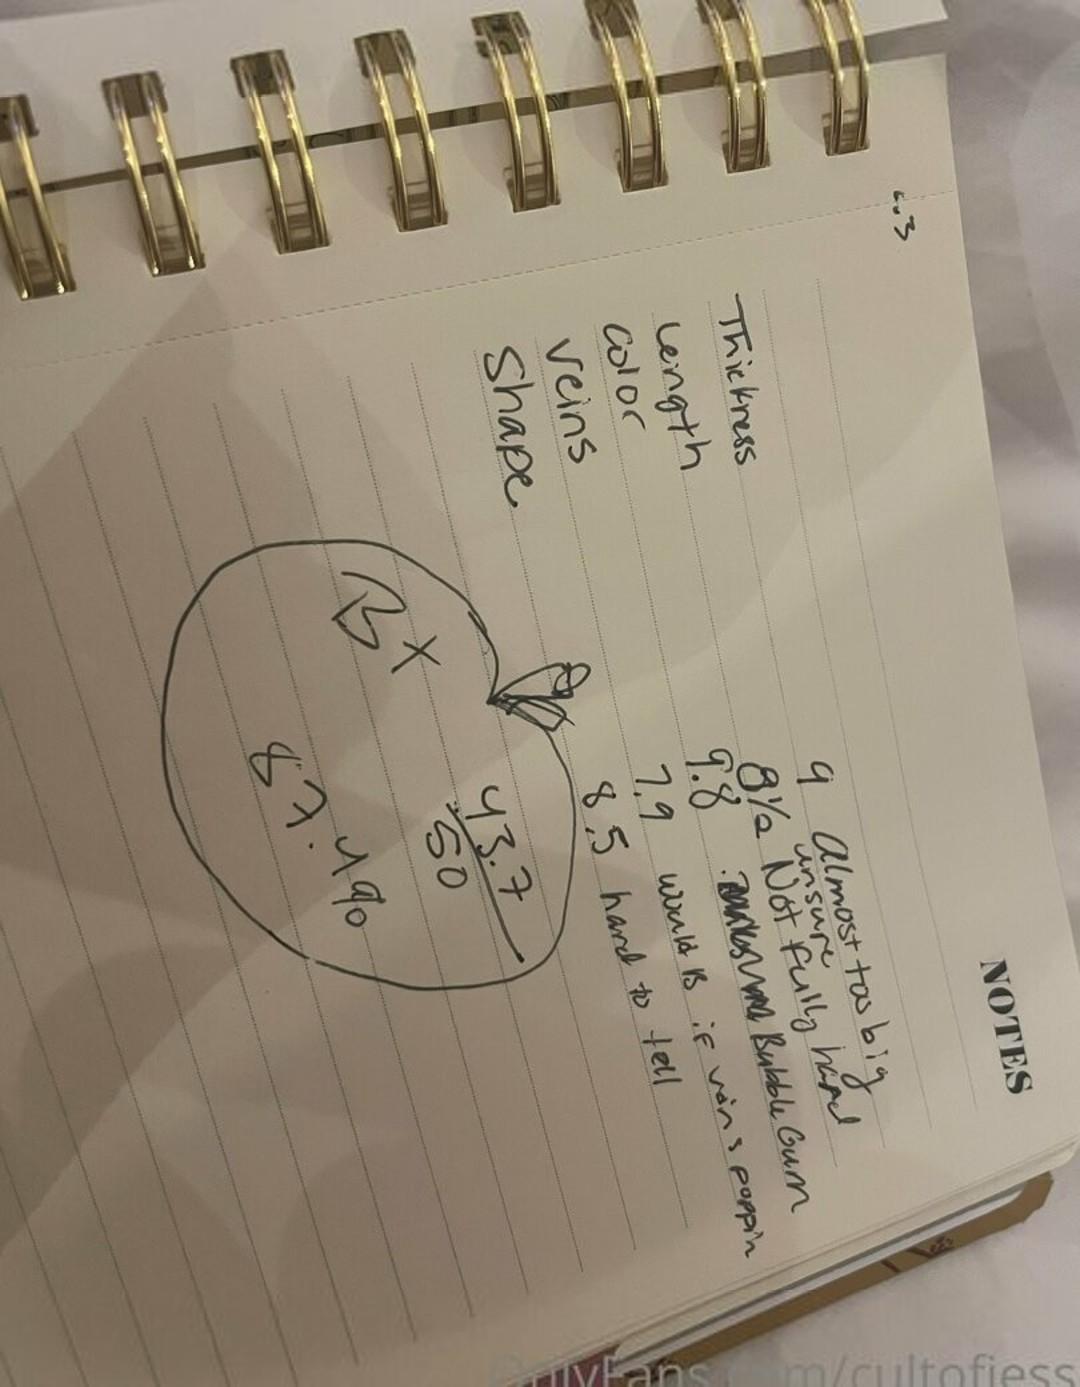 NOTES
Thickness 9 almost too big
unsure
Length 8 1/2 Not fully hard
Color 9.8 Bubble Gum
Veins 7.9 would B if veins poppin
Shape 8.5 hard to tell
43.7
50
B+
87.4%
OnlyFans.com/cultofjess